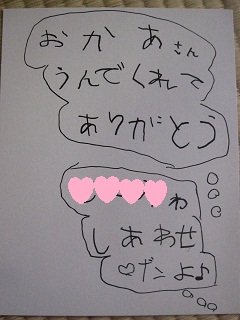 おかあさん
うんでくれて
ありがとう
わ
しあわせ
♡だよ♪